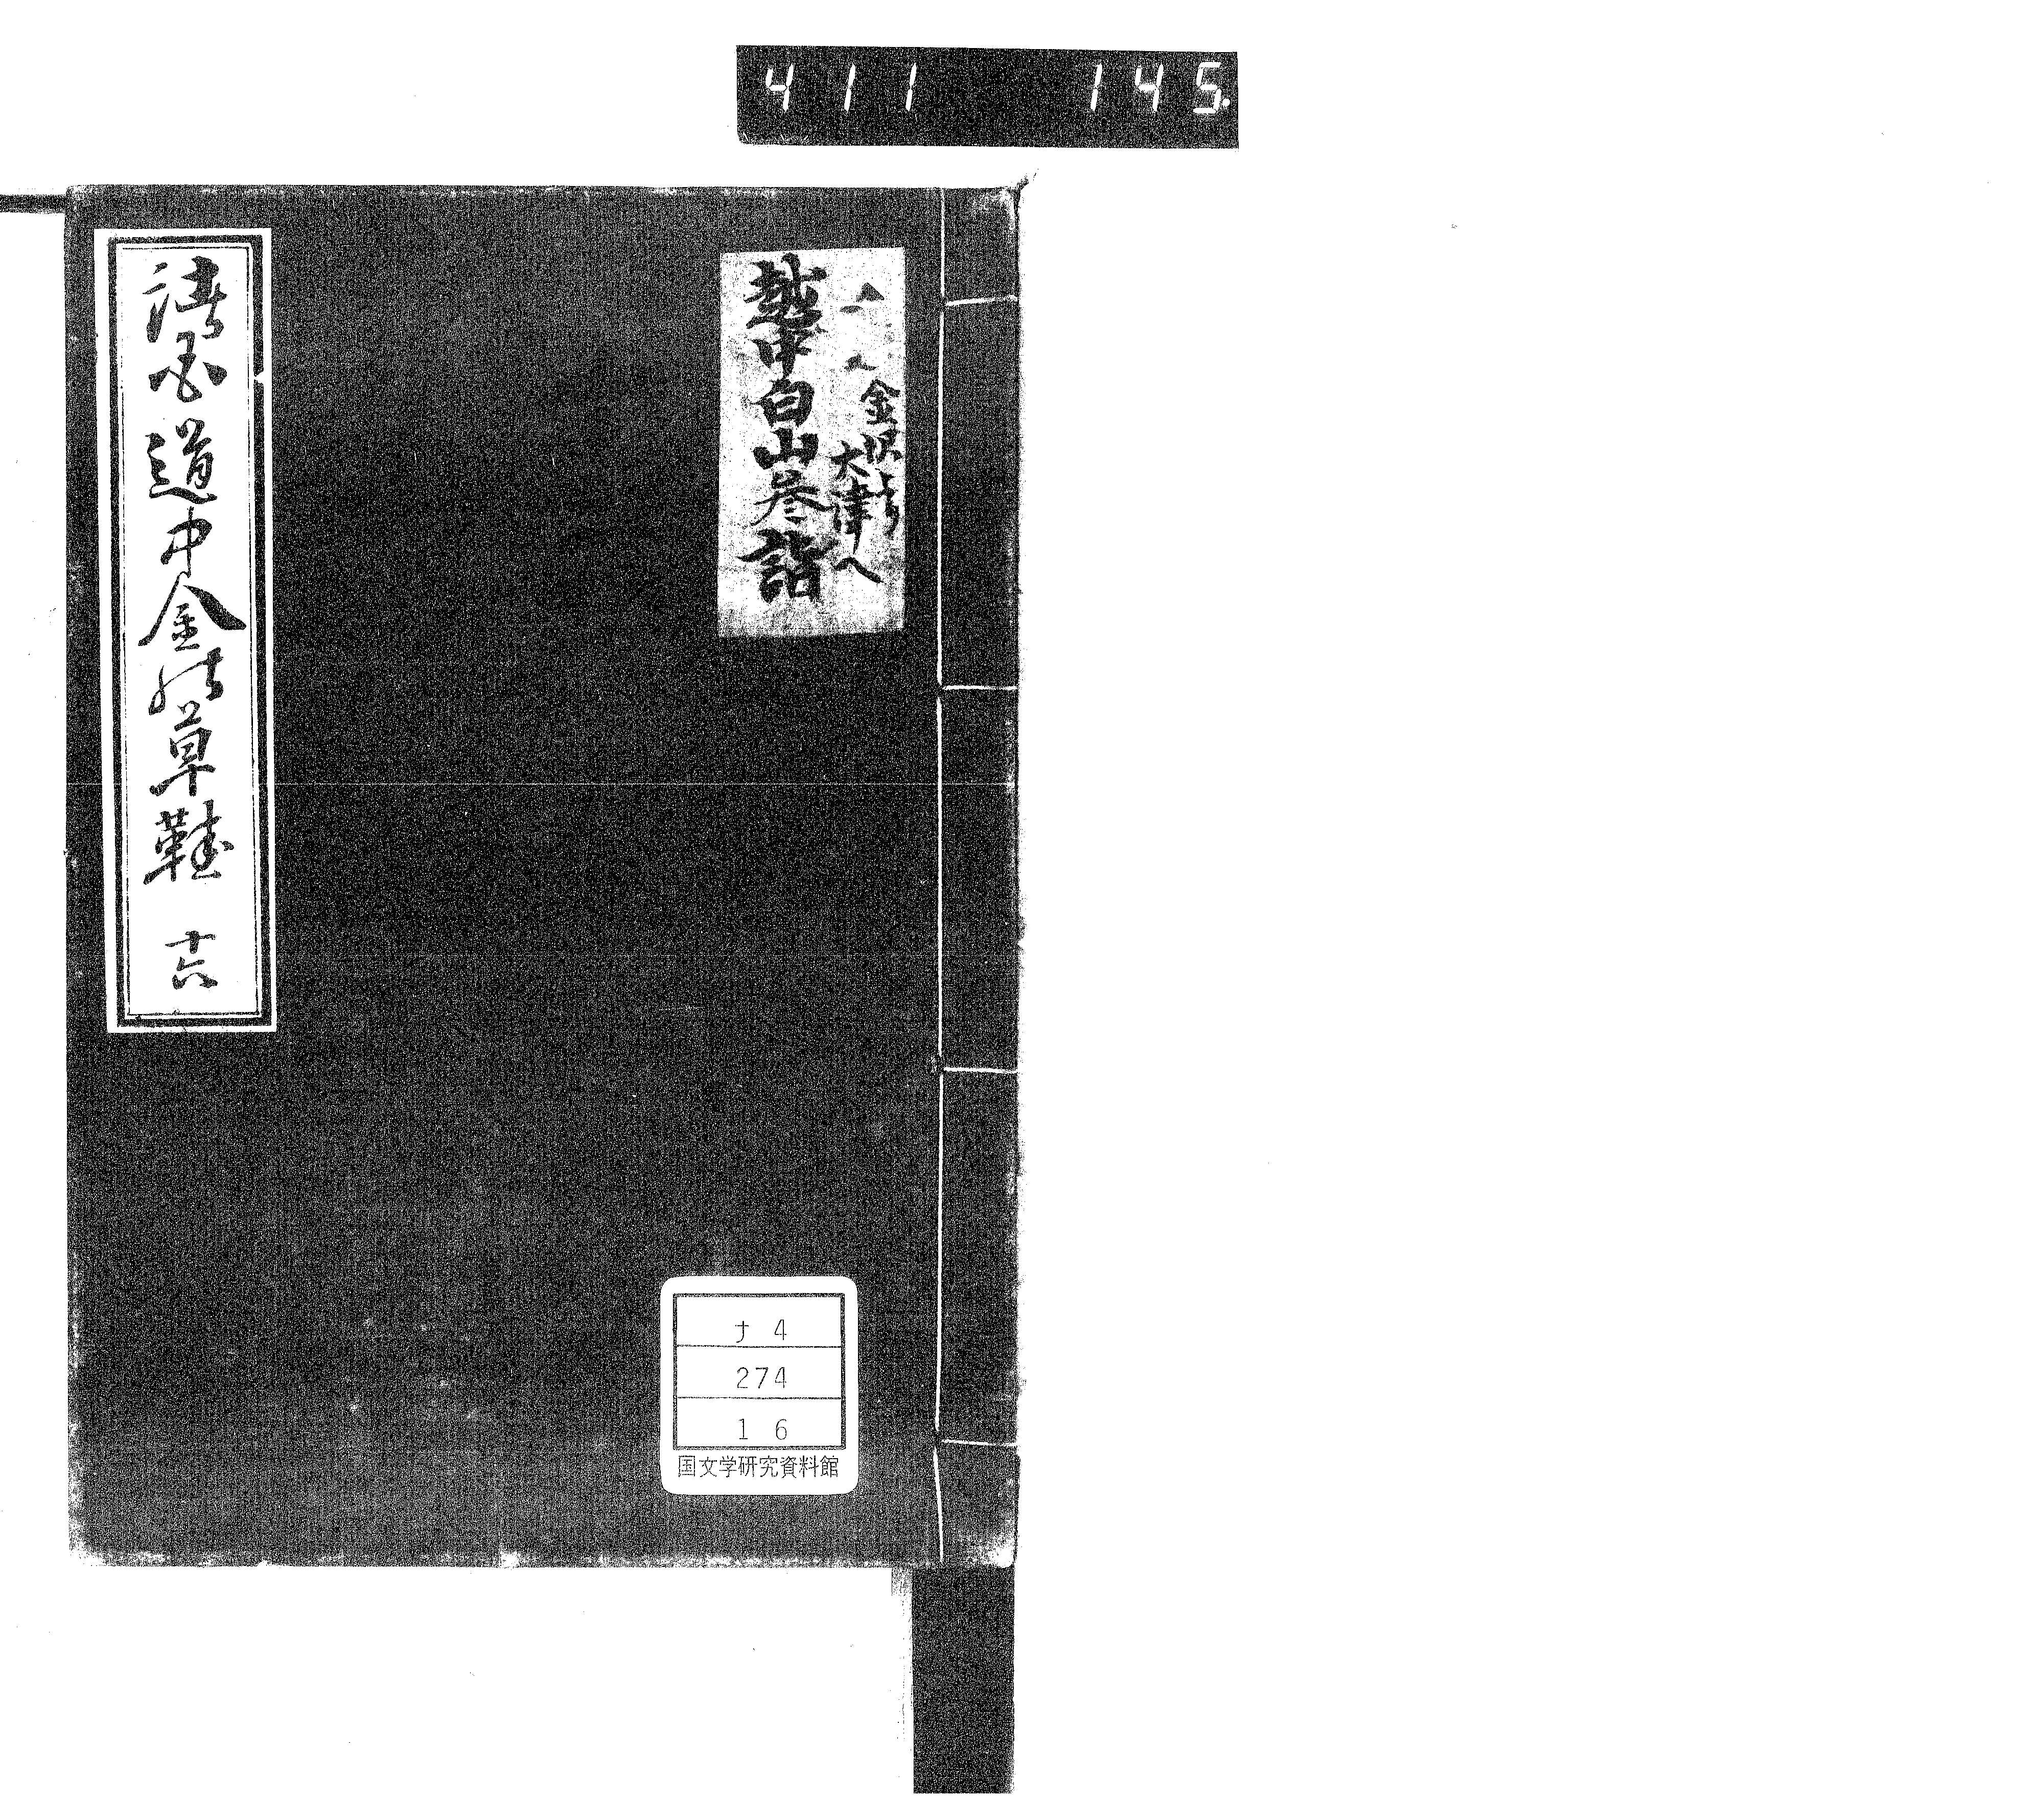 411 145
金沢より
大津へ
越中白山参詣
諸国道中金の草鞋 十六
ナ 4
274
1 6
国文学研究資料館